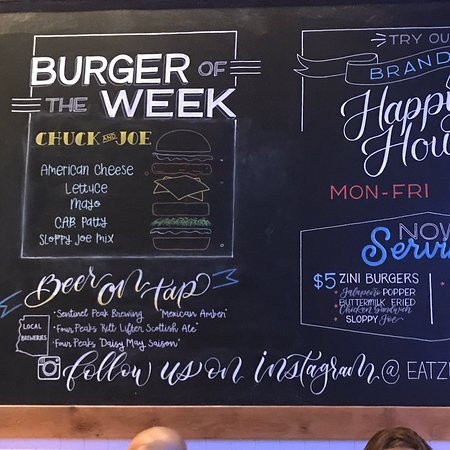 BURGER OF
THE WEEK
CHUCK AND JOE
American Cheese
Lettuce
Mayo
C.A.B. Patty
Sloppy Joe Mix
Beer on Tap
LOCAL
BREWERIES
• Sentinel Peak Brewing "Mexican Amber"
• Four Peaks "Kilt Lifter Scottish Ale"
• Four Peaks "Daisy May Saison"
follow us on instagram @ EATZ
TRY OU
BRAND
Happy
Hou
MON-FRI
NOW
Servi
$5 ZINI BURGERS
Jalapeño POPPER
BUTTERMILK FRIED
Chicken Sandwich
SLOPPY Joe